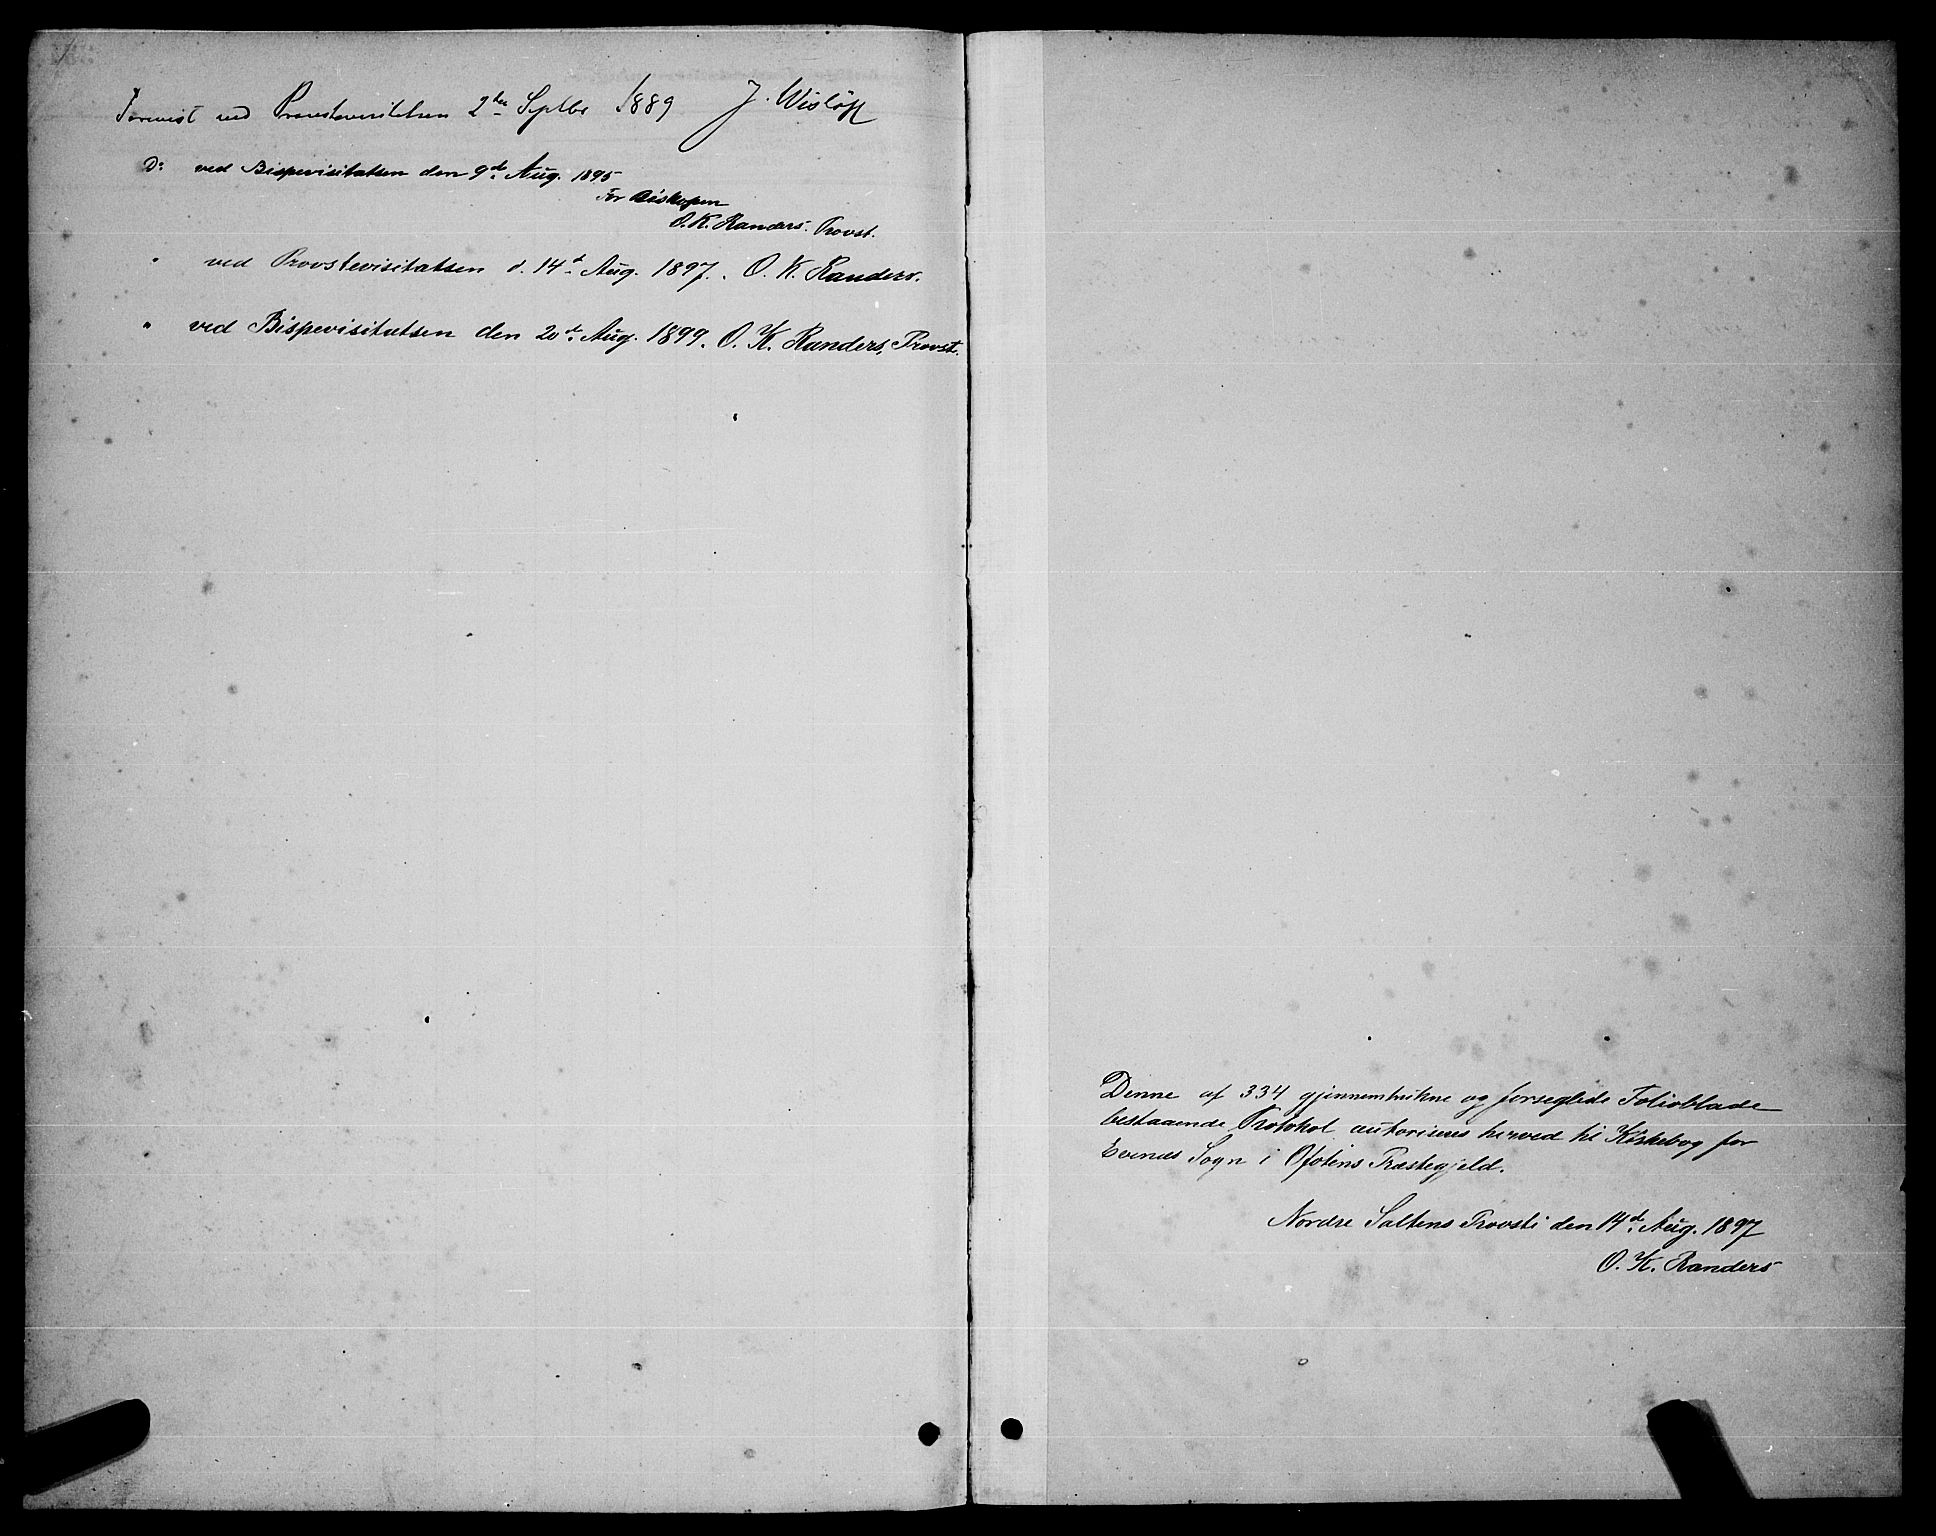 Forevist ved Provstevisitatsen 2den Septbr 1889 J. Wisløff
Do ved Bispevisitatsen den 9de Aug. 1895
For Biskopen
O. K. Randers. Provst.
" ved Provstevisitatsen d. 14de Aug. 1897. O. K. Randers.
" ved Bispevisitatsen den 20de Aug. 1899. O. K. Randers, Provst.
Denne af 334 gjennemtrukne og forseglede Folioblade
bestaaende Protokol autoriseres herved til Kirkebog for
Evenes Sogn i Ofotens Præstegjeld.
Nordre Saltens Provsti den 14de Aug. 1897
O. K. Randers